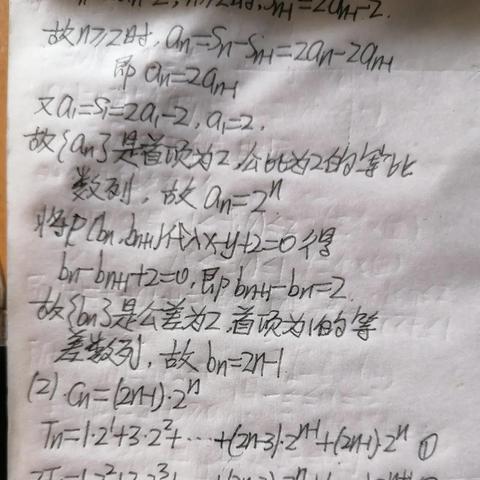 n≥2时,Sn-1=2an-1-2.
故n≥2时,an=Sn-Sn-1=2an-2an-1
即an=2an-1
又a1=S1=2a1-2,a1=2.
故{an}是首项为2,公比为2的等比
数列,故an=2^n
将P(bn,bn+1)代入x-y+2=0得
bn-bn+1+2=0,即bn+1-bn=2.
故{bn}是公差为2,首项为1的等
差数列,故bn=2n-1
(2).Cn=(2n-1)·2^n
Tn=1·2+3·2^2+…+(2n-3)·2^n-1+(2n-1)·2^n ①